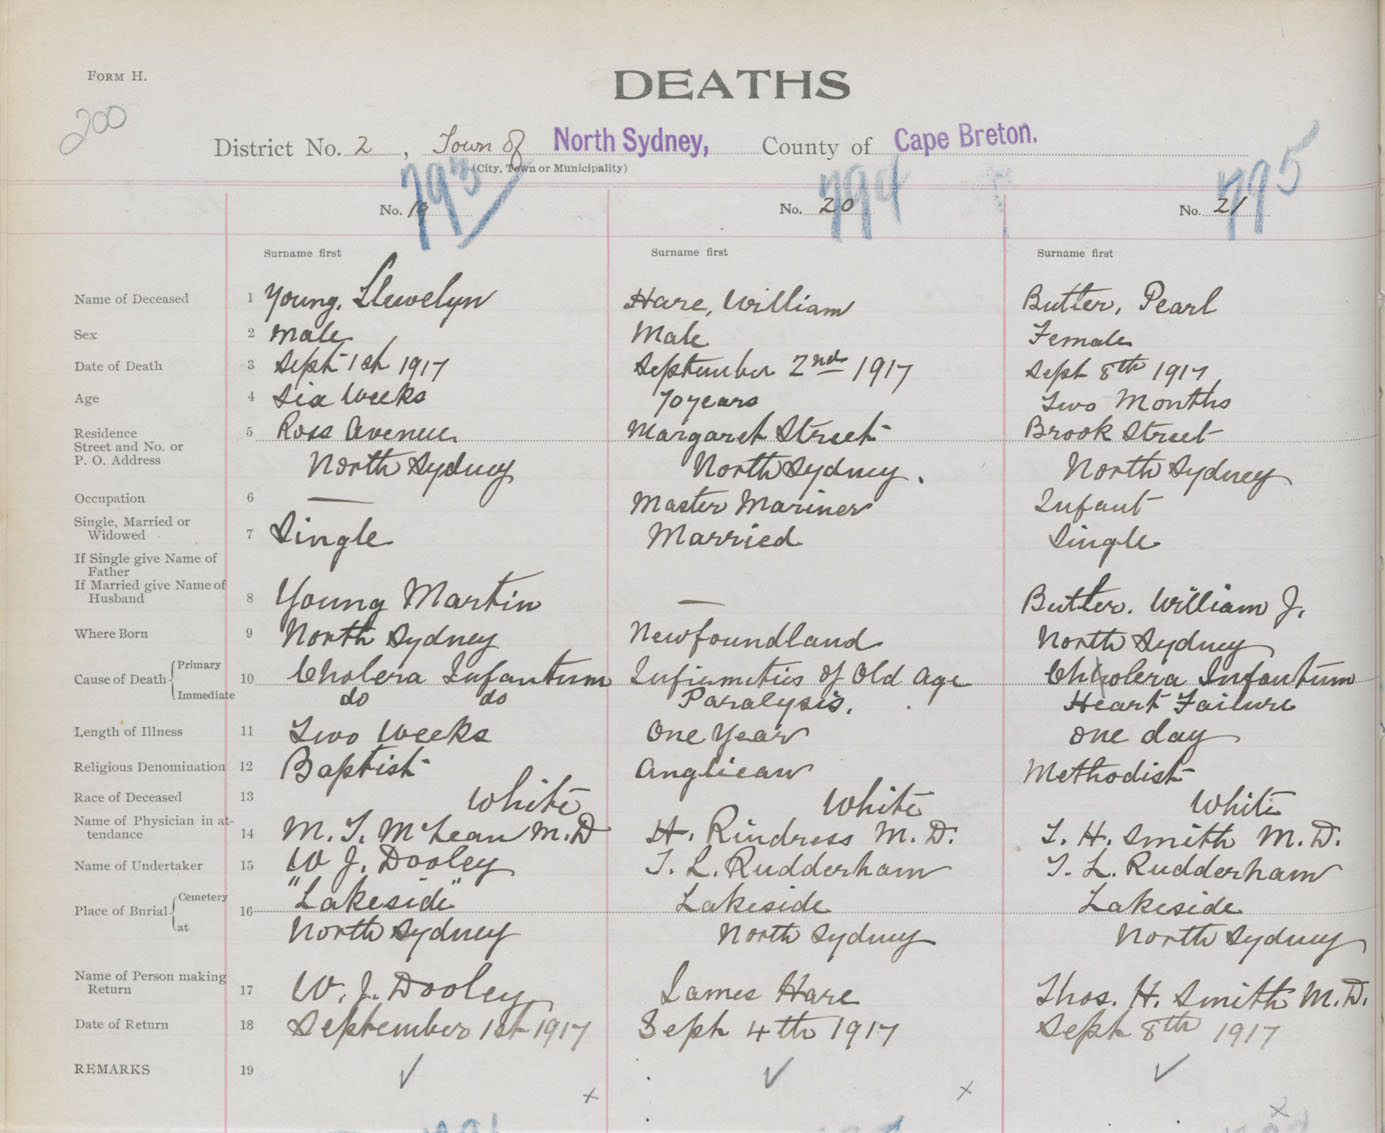 FORM H.
DEATHS
200
District No. 2, Town of North Sydney, County of Cape Breton.
(City, Town or Municipality)
793 794 795
No. 19 No. 20 No. 21
Surname first Surname first Surname first
Name of Deceased 1 Young, Llewelyn Hare, William Butter, Pearl
Sex 2 Male Male Female
Date of Death 3 Sept 1st 1917 September 2nd 1917 Sept 8th 1917
Age 4 Six Weeks 70 years Two Months
Residence
Street and No. or 5 Ross Avenue Margaret Street Brook Street
P. O. Address North Sydney North Sydney. North Sydney
Occupation 6 — Master Mariner Infant
Single, Married or
Widowed 7 Single Married Single
If Single give Name of
Father
If Married give Name of
Husband 8 Young Martin — Butter. William J.
Where Born 9 North Sydney Newfoundland North Sydney
Cause of Death Primary 10 Cholera Infantum Infirmities of Old Age Cholera Infantum
Immediate do do Paralysis. Heart Failure
Length of Illness 11 Two Weeks One Year one day
Religious Denomination 12 Baptist Anglican Methodist
Race of Deceased 13 White White White
Name of Physician in at-
tendance 14 M. T. McLean M.D H. Rindress M.D. T. H. Smith M.D.
Name of Undertaker 15 W J. Dooley T. L. Rudderham T. L. Rudderham
Place of Burial Cemetery 16 "Lakeside" Lakeside Lakeside
at North Sydney North Sydney North Sydney
Name of Person making
Return 17 W. J. Dooley James Hare Thos. H. Smith M.D.
Date of Return 18 September 1st 1917 Sept 4th 1917 Sept 8th 1917
REMARKS 19 ✓ ✓ ✓
x x x